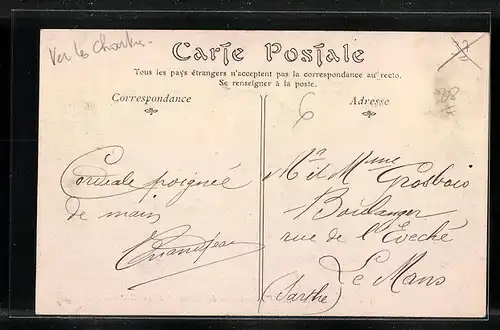 Carte Postale
Tous les pays étrangers n'acceptent pas la correspondance au recto.
Se renseigner à la poste.
Correspondance
Adresse
6
Cordiale poignée
de main
Mr et Mme Grosbois
Boulanger
rue de l'Eveché
Le Mans
(Sarthe)